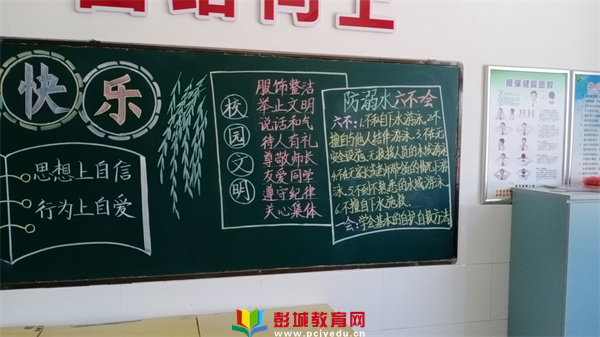 快乐
思想上自信
行为上自爱
校园文明
服饰整洁
举止文明
说话和气
待人有礼
尊敬师长
友爱同学
遵守纪律
关心集体
防溺水六不会
六不:1.不私自下水游泳.2.不
擅自与他人结伴游泳.3.不在无
安全设施、无救援人员的水域游泳
4.不在无家长或老师带领的情况下游
泳.5.不到不熟悉的水域游泳
6.不擅自下水施救.
一会:学会基本的自护自救方法
眼保健操图解
彭城教育网
www.pcjyedu.cn